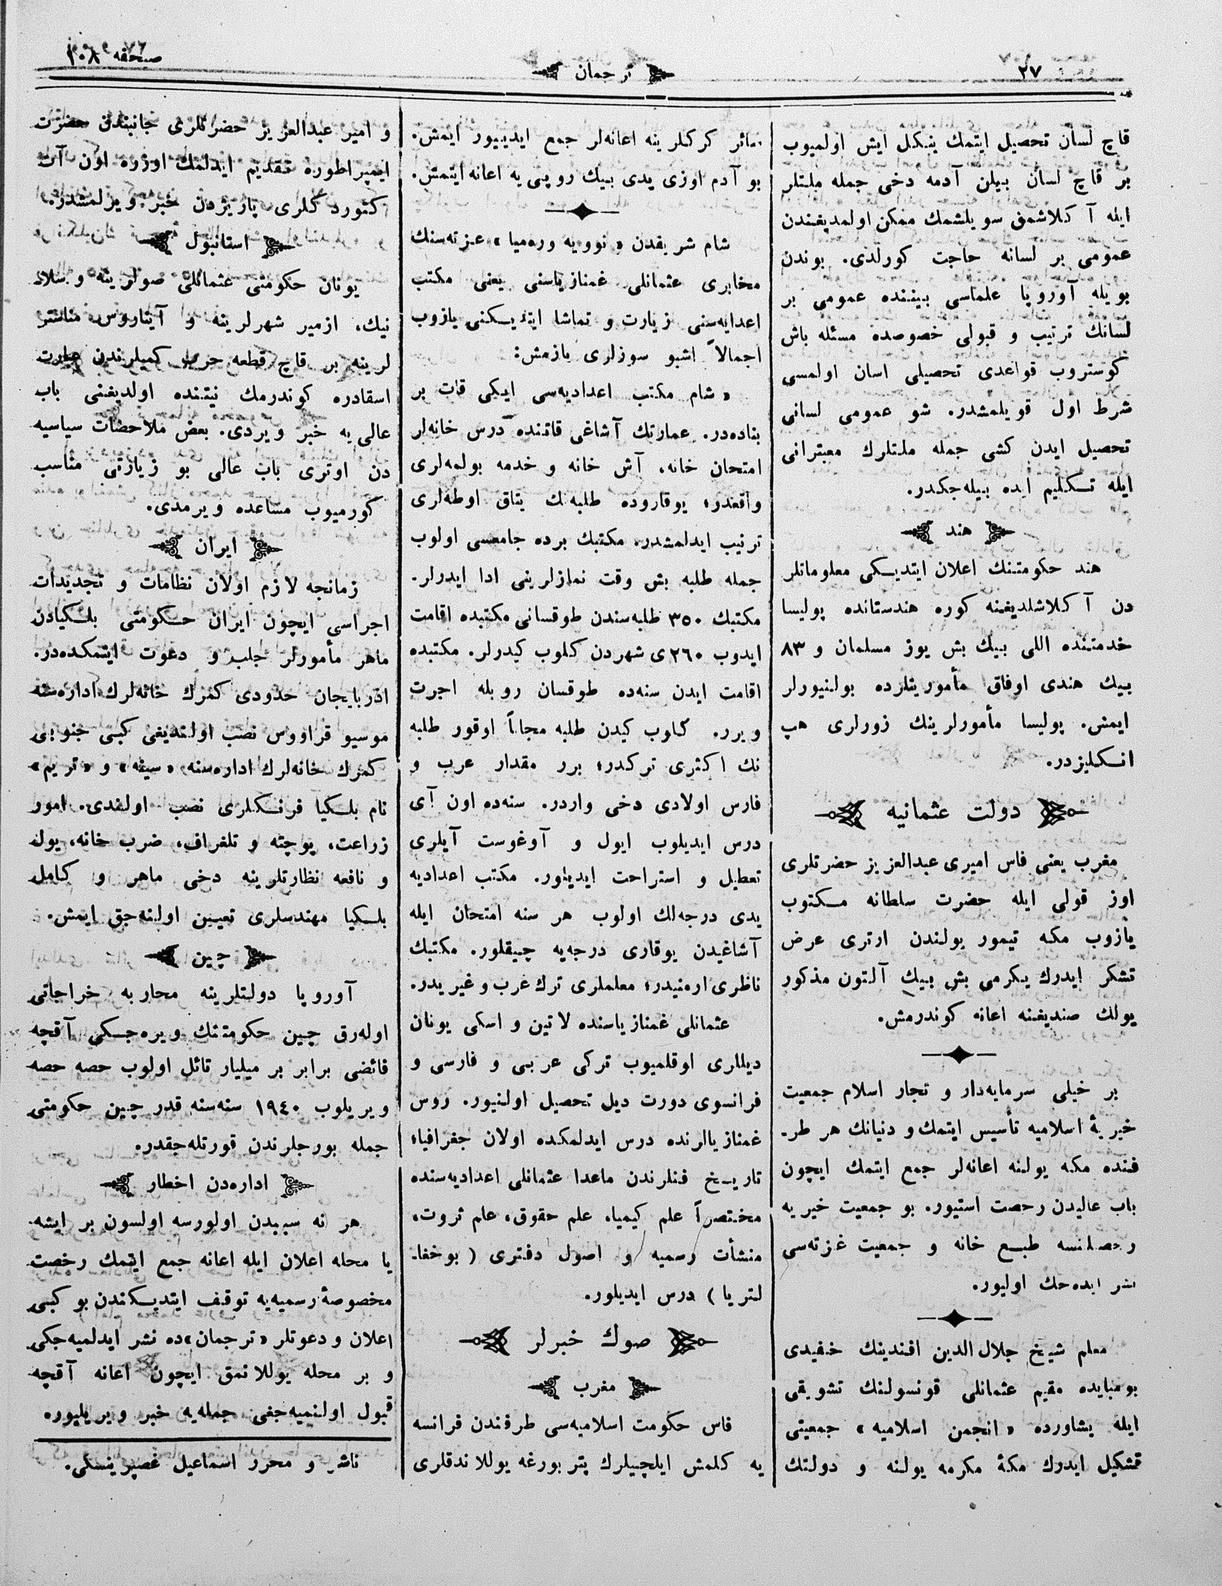 ٢٧
ترجمان
صحفه ١٠٨
قاچ لسان تحصیل ایتمك ینكل ایش اولمیوب
بر قاچ لسان بیلن آدمه دخی جمله ملتلر
ایله آ كلاشمق سویلشمك ممكن اولمدیغندن
عمومی بر لسانه حاجت كورلدی. بوندن
بویله آوروپا علماسی بیننده عمومی بر
لسانك ترتیب و قبولی خصوصده مسئله باش
كوستروب قواعدی تحصیلی اسان اولمسی
شرط اول قویلمشدر. شو عمومی لسانی
تحصیل ایدن كشی جمله ملتلرك معتبرانی
ایله تكلیم ایده بیله‌جكدر.
هند
هند حكومتنك اعلان ایتدیكی معلوماتلر
دن آ كلاشلدیغنه كوره هندستانده پولیسا
خدمتنده اللی بیك بش یوز مسلمان و ٨٣
بیك هندی اوفاق مأموریتلرده بولنیورلر
ایمش. پولیسا مأمورلرینك زورلری هپ
انكلیزدر.
دولت عثمانیه
مغرب یعنی فاس امیری عبدالعزیز حضرتلری
اوز قولی ایله حضرت سلطانه مكتوب
یازوب مكه تیمور یولندن ارتری عرض
تشكر ایدرك یكرمی بش بیك آلتون مذكور
یولك صندیغنه اعانه كوندرمش.
بر خیلی سرمایه‌دار و تجار اسلام جمعیت
خیریۀ اسلامیه تأسیس ایتمك و دنیانك هر طر-
فنده مكه یولنه اعانه‌لر جمع ایتمك ایچون
باب عالیدن رحصت استیور. بو جمعیت خیریه
رحصلنسه طبع خانه و جمعیت غزته‌سی
نشر ایده‌جك اولیور.
معلم شیخ جلال‌الدین افندینك خفیدی
بومبایده مقیم عثمانلی قونسولنك تشویقی
ایله پشاورده «انجمن اسلامیه» جمعیتی
تشكیل ایدرك مكۀ مكرمه یولنه و دولتك
سائر كركلرینه اعانه‌لر جمع ایدیبور ایمش.
بو آدم اوزی یدی بیك روپی یه اعانه ایتمش.
شام شریفدن «نوویه وره‌میا» غزته‌سنك
مخابری عثمانلی غمنازیاسنی یعنی مكتب
اعدایه‌سنی زیارت و تماشا ایتدیكنی یازوب
اجمالاً اشبو سوزلری یازمش:
«شام مكتب اعدادیه‌سی ایكی قات بر
بناده‌در. عمارتك آشاغی قاتنده درس خانه‌لر
امتحان خانه، آش خانه و خدمه بولمه‌لری
واقعدر؛ یوقاروده طلبه‌نك یتاق اوطه‌لری
ترتیب ایدلمشدر. مكتبك برده جامعسی اولوب
جمله طلبه بش وقت نمازلرینی ادا ایدرلر.
مكتبك ٣٥٠ طلبه‌سندن طوقسانی مكتبده اقامت
ایدوب ٢٦٠ی شهردن كلوب كیدرلر. مكتبده
اقامت ایدن سنه‌ده طوقسان روبله اجرت
ویرر. كلوب كیدن طلبه مجاناً اوقور طلبه
نك اكثری تركدر؛ برر مقدار عرب و
فارس اولادی دخی واردر. سنه‌ده اون آی
درس ایدیلوب ایول و آوغوست آیلری
تعطیل و استراحت ایدیلور. مكتب اعدادیه
یدی درجه‌لك اولوب هر سنه امتحان ایله
آشاغیدن یوقاری درجه‌یه چیقلور. مكتبك
ناظری ارمنیدر؛ معلملری ترك عرب و غیریدر.
عثمانلی غمنازیاسنده لاتین و اسكی یونان
دیللری اوقلمیوب تركی عربی و فارسی و
فرانسوی دورت دیل تحصیل اولنیور. روس
غمنازیالرنده درس ایدلمكده اولان جغرافیا؛
تاریخ فنلرندن ماعدا عثمانلی اعدادیه‌سنده
مختصراً علم كیمیا، علم حقوق، علم ثروت،
منشأت رسمیه و اصول دفتری (بوخغا-
لتریا) درس ایدیلور.
صوك خبرلر
مغرب
فاس حكومت اسلامیه‌سی طرفندن فرانسه
یه كلمش ایلچیلرك پتربورغه یوللاندقلری
و امیر عبدالعزیز حضرتلری جانبندن حضرت
ایمپراطوره تقدیم ایدلمك اوزره اون آت
كتوردكلری پاریژدن خبر ویرلمشدر.
استانبول
یونان حكومتی عثمانلی صولرینه و سلا
نیك، ازمیر شهرلرینه و آیناروس مناستر
لرینه بر قاچ قطعه حرب كمیلرندن عبارت
اسقادره كوندرمك نیتنده اولدیغنی باب
عالی یه خبر ویردی. بعض ملاحضات سیاسیه
دن اوتری باب عالی بو زیارتی مناسب
كورمیوب مساعده ویرمدی.
ایران
زمانجه لازم اولان نظامات و تجدیدات
اجراسی ایچون ایران حكومتی بلكیادن
ماهر مأمورلر جلب و دعوت ایتمكده‌در.
اذربایجان حدودی كمرك خانه‌لرك اداره‌سنه
موسیو قراووس نصب اولندیغی كبی جنوبی
كمرك خانه‌لرك اداره‌سنه «سیفه» و «تریم»
نام بلكیا فرنكلری نصب اولندی. امور
زراعت، پوچته و تلغراف، ضرب خانه، یول
و نافعه نظارتلرینه دخی ماهر و كامل
بلكیا مهندسلری تعیین اولنه‌جق ایمش.
چین
آوروپا دولتلرینه محاربه خراجاتی
اوله‌رق چین حكومتنك ویره‌جكی آقچه
فائضی برابر بر میلیار تائل اولوب حصه حصه
ویریلوب ١٩٤٠ سنه‌سنه قدر چین حكومتی
جمله بورجلرندن قورتله‌جقدر.
اداره‌دن اخطار
هر نه سببدن اولورسه اولسون بر ایشه
یا محله اعلان ایله اعانه جمع ایتمك رخصت
مخصوصۀ رسمیه‌یه توقیف ایتدیكندن بو كبی
اعلان و دعوتلر «ترجمان»ده نشر ایدلمیه‌جكی
و بر محله یوللانمق ایچون اعانه آقچه
قبول اولنمیه‌جغی جمله‌یه خبر ویریلیور.
ناشر و محرر اسماعیل غصپرینسكی.